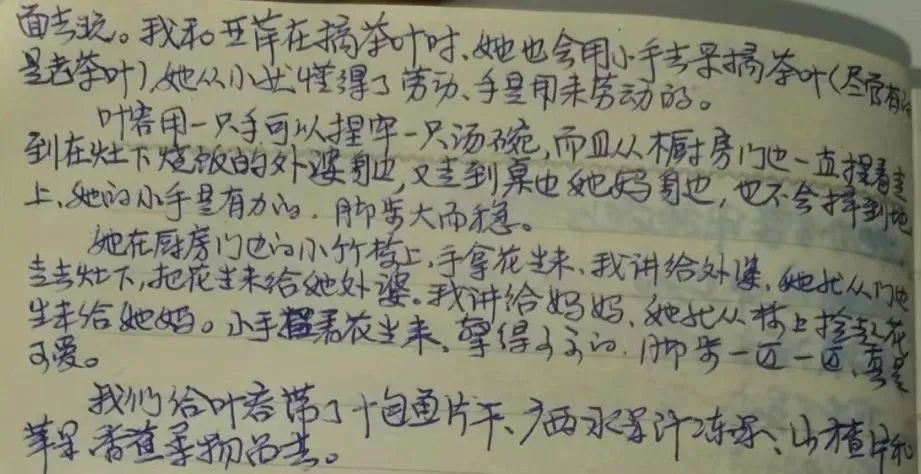 面去玩。我和亚萍在摘茶叶时、她也会用小手去采摘茶叶(尽管有的
是老茶叶),她从小就懂得了劳动、手是用来劳动的。
叶蓉用一只手可以捏牢一只汤碗,而且从橱房门边一直捏着走
到在灶下烧饭的外婆身边,又走到桌边她妈身边,也不会摔到地
上、她的小手是有力的.脚步大而稳。
她在厨房门边的小竹椅上,手拿花生来.我讲给外婆,她就从门边
走去灶下,把花生来给她外婆。我讲给妈妈,她就从椅上拾起花
生来给她妈。小手握着花生来,擎得高高的.脚步一迈一迈,真是
可爱。
我们给叶蓉带了十包鱼片干、广西水果汁冻、山楂片和
苹果香蕉等物品去。